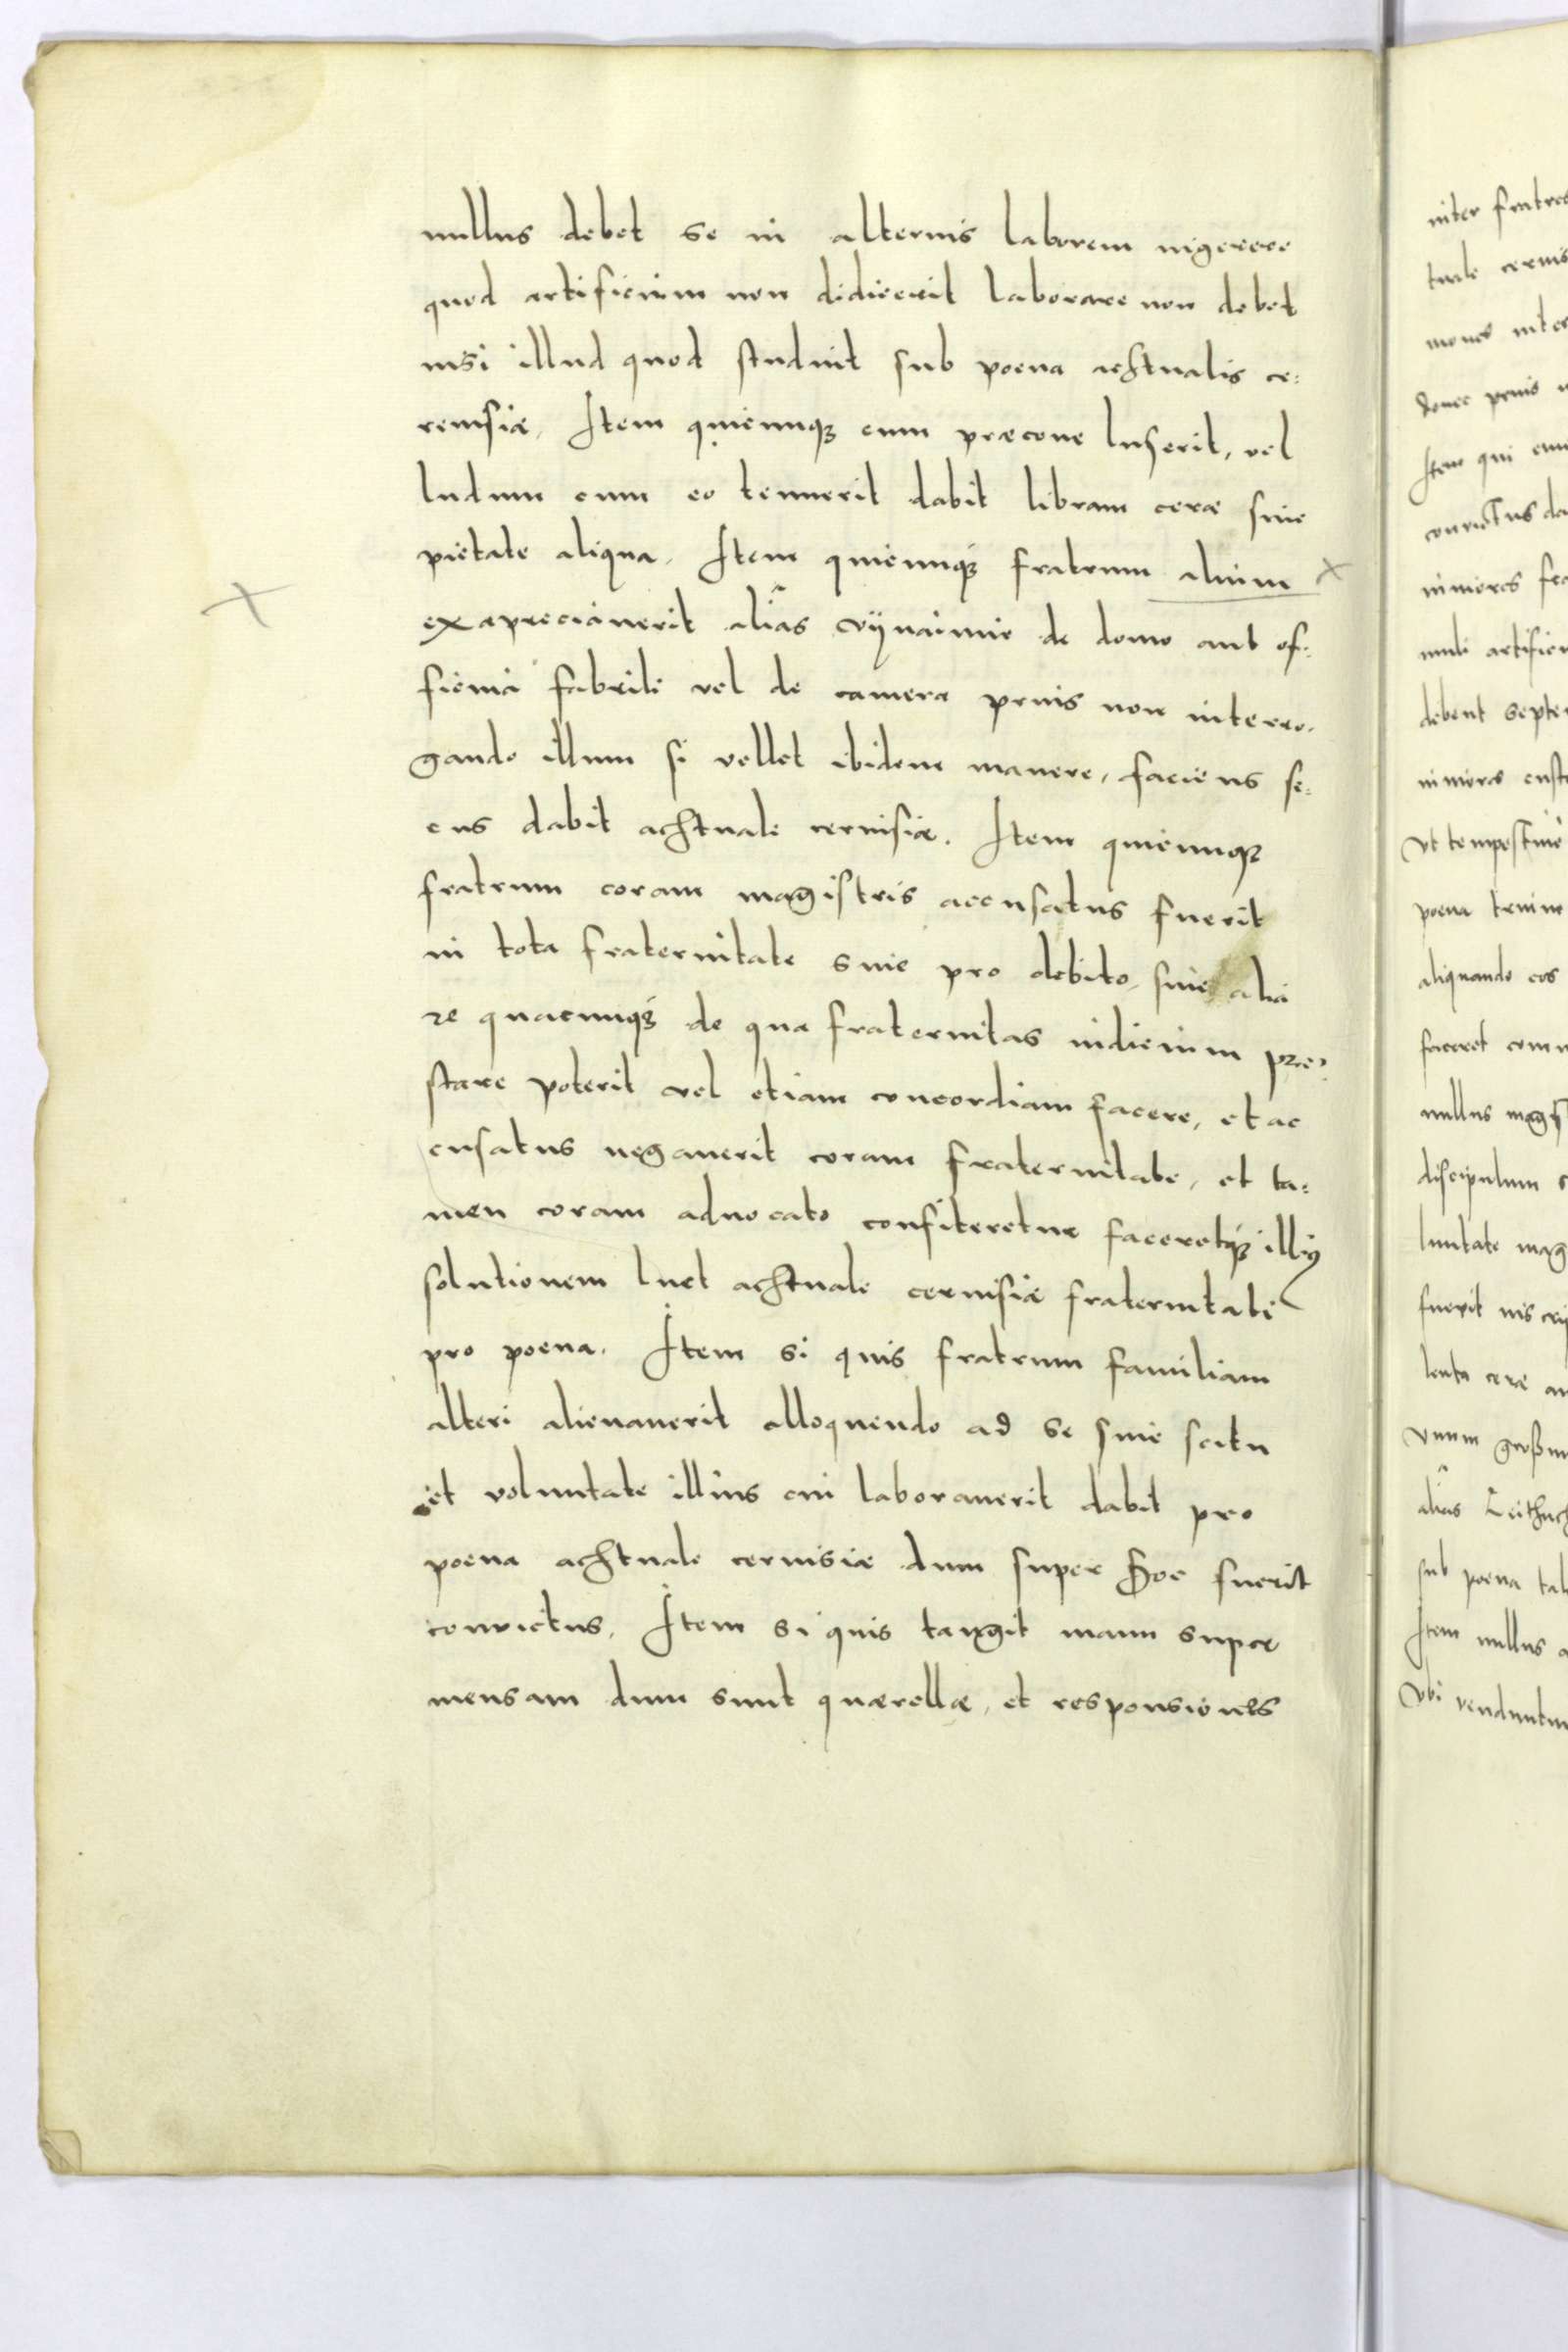 nullus debet se in alterius laborem ingerere
quod artificium non didicerit laborare non debet
nisi illud quod studuit sub poena achtualis ce:
reuisiæ. Item quicunqȝ cum præcone luserit, vel
ludum cum eo tenuerit dabit libram ceræ sine
pietate aliqua. Item quicunqȝ fratrum alium x
x
exaprecianerit aliâs vÿnaimie de domo aut of:
ficina fabrili vel de camera prius non interro.
gando illum si vellet ibidem manere, faciens se:
cus dabit achtuale ceruisiæ. Item quicunqȝ
fratrum coram magistris accusatus fuerit
in tota fraternitate siue pro debito, siue alia
re quacunqȝ de qua fraternitas iudicium præ:
stare poterit vel etiam concordiam facere, et ac
cusatus negauerit coram fraternitate, et ta:
men coram aduocato confiteretur faceretqȝ illiÿ
solutionem luet achtuale ceruisiæ fraternitati
pro poena. Item si quis fratrum familiam
alteri alienauerit alloquendo ad se sine scitu
et voluntate illius cui laborauerit dabit pro
poena achtuale ceruisiæ dum super hoc fuerit
conuictus. Item si quis tangit manu super
mensam dum sunt quærellæ, et responsiones
inter fratres
tuale ceruis
mones inter
donec prius
Item qui cum
conuictus da
iuniores fra
muli artificii
debent septe
iuniores custo
vt tempestiue
poena trium
aliquando eos
faceret com
nullus magis
discipulum
luntate mag
fuerit
lenta ceræ
vnum großum
aliâs
sub poena tal
Item nullus a
vbi venduntur